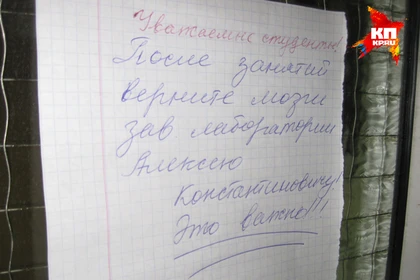 Уважаемые студенты!
После занятий
верните мозги
зав лаборатории
Алексею
Константиновичу!
Это важно!!!
КП
KP.RU